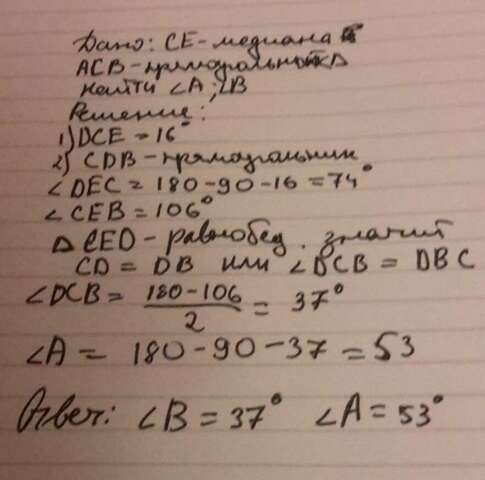 Дано: CE - медиана
ACB - прямоугольный Δ
найти ∠A; ∠B
Решение:
1) DCE = 16°
2) CDB - прямоугольник
∠DEC = 180 - 90 - 16 = 74°
∠CEB = 106°
Δ CED - равнобед. значит
CD = DB или ∠DCB = DBC
∠DCB = (180 - 106) / 2 = 37°
∠A = 180 - 90 - 37 = 53
Ответ: ∠B = 37° ∠A = 53°